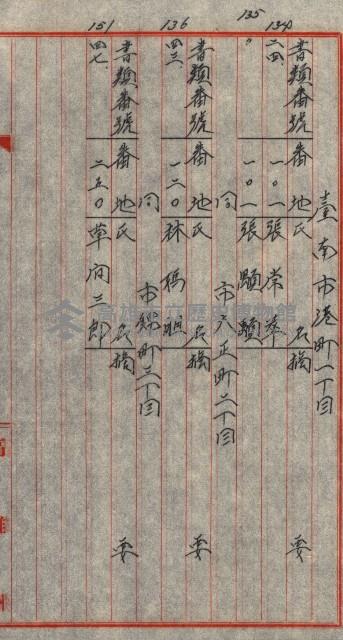 臺南市港町一丁目
書類番號 番地 氏名 摘要
134
二四 一〇一 張常華
135
〃 一〇一 張顯
同 市大正町二丁目
書類番號 番地 氏名 摘要
136
四三 一二〇 林
同 市錦町三丁目
書類番號 番地 氏名 摘要
151
四七 二五〇 草間三郎
高雄州